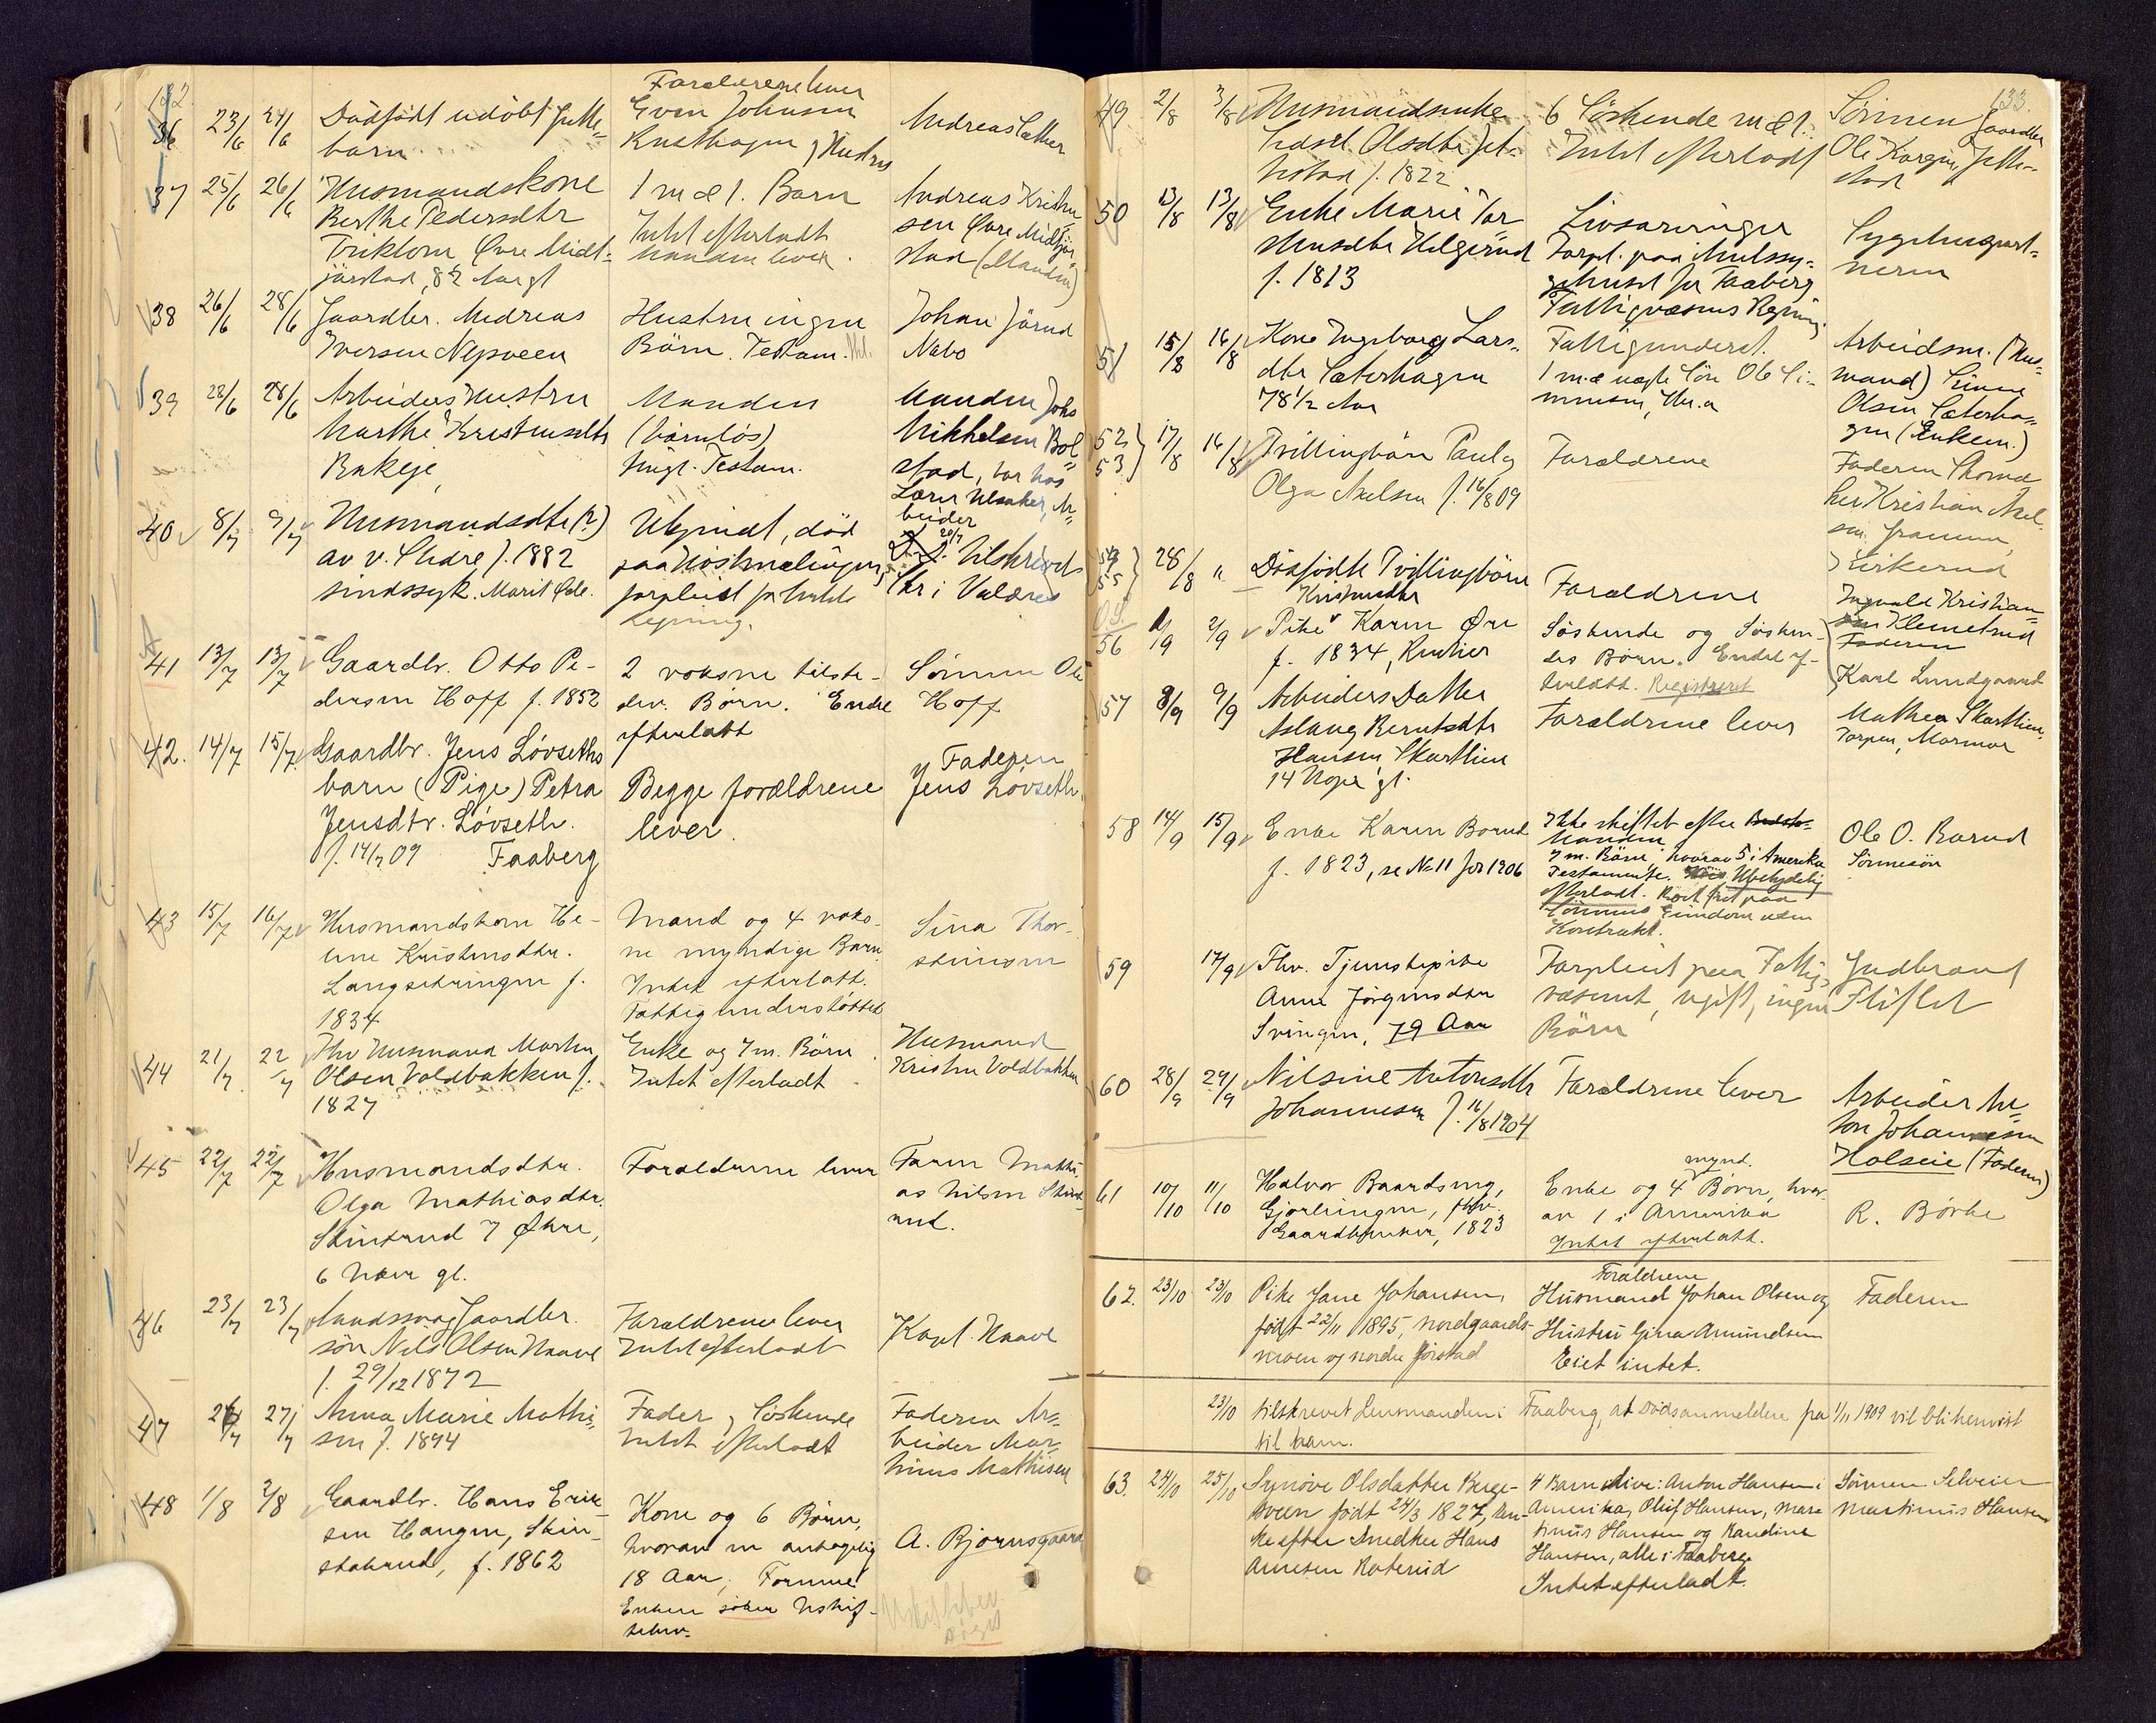 132
Forældrene lever
36 23/6 24/6 Dødfødt udöbt Gutte-
barn
Even Johnsen
Rusthagen, Hustru
Andreas Sæther
37 25/6 26/6 Husmandskone
Berthe Pedersdtr
Øvre Midt-
jørstad, 82 Aar gl
1 m æ 1. Barn
Intet efterladt
Manden lever.
Andreas Kristen
sen Øvre Midtjør-
stad (Manden)
38 26/6 28/6 Gaardbr. Andreas
Iversen Nepveen
Hustru ingen
Börn. Testam.
Johan Jörud
Nabo
39 28/6 28/6 Arbeiders Hustru
Marthe Kristensdtr
Bakeje,
Manden
(barnlös)
Testam.
Manden Johs
Mikkelsen Bol-
stad, bor hos
Lærer Ulsaker, Ar-
beider
40 8/7 9/7 Husmandsdtr (?)
av v. Slidre f. 1882
sindssyk. Marit
Ugivt, död
forpleiet
Regning.
20/7
Tilskrevet
i Valdres
41 13/7 13/7 Gaardbr. Otto Pe-
dersen Hoff f. 1852
2 voksne tilste-
dev. Børn. Endel
efterlatt
Sønnen Ole
Hoff
42. 14/7 15/7 Gaardbr. Jens Lövseths
barn (Pige) Petra
Jensdtr. Lövseth.
f. 14/7 09 Faaberg
Begge forældrene
lever.
Faderen
Jens Lövseth.
43 15/7 16/7 Husmandskone He-
lene Kristensdtr.
Langseteringen f.
1834
Mand og 4 voks-
ne myndige Barn
Intet efterlatt.
Fattigunderstöttet
Sina Thor-
stensen
44 21/7 22/7 Fhv Husmand Morten
Olsen Voldbakken f.
1827
Enke og 7 m. Börn.
Intet efterladt
Husmand
Kristen Voldbakken
45 22/7 22/7 Husmandsdtr.
Olga Mathiasdtr.
Skinsrud 7 Øvre,
6 Uker gl.
Forældrene lever
Faren Mathi-
as Nilsen Skins-
rud.
46 23/7 23/7 Aandssvag Gaardbr.
sön Nils Olsen Haave
f. 29/12 1872
Forældrene lever
Intet efterladt
Karl Haave
47 26/7 27/7 Anna Marie Mathi-
sen f. 1894
Fader, Söskende
Intet efterladt
Faderen Ar-
beider Mar-
tinus Mathisen
48 1/8 2/8 Gaardbr. Hans Erik-
sen Haugen, Skin-
stabrud, f. 1862
Kone og 6 Børn,
hvorav en antagelig
18 Aar; Formue!
Enken søker Uskif-
tebev.
A. Bjørnsgaard
Uskiftebev.
søges
133
49 2/8 3/8 Husmandsenke
Sidsel Olsdtr Jet-
stad f. 1822
6 Söskende m æ 1.
Intet efterladt
Sönnen Gaardbr
Ole Jette-
stad
50 13/8 13/8 Enke Marie Tor
stensdtr Helgerud
f. 1813
Livsarvinger
Forpl. paa Amtssy-
gehuset for Faaberg
Fattigvæsens Regning
Sygehusgart-
neren
51 15/8 16/8 Kone Ingeborg Lars-
dtr Sæterhagen
78 1/2 Aar
Fattigunderst.
1 m. æ uegte Sön Ole Si-
mensen
Arbeidsm. (Hus-
mand) Simen
Olsen Sæterha-
gen (Enkem.)
52 53 17/8 16/8 Tvillingbörn Paul og
Olga Axelsen f. 16/8 09
Forældrene
Faderen Skoma
ker Kristian Axel-
sen
Kirkerud
54 55 28/8 " Dödfödte Tvillingbörn
Forældrene
Ingvald Kristian-
sen Klemetrud
Faderen
O.S.
56 1/9 2/9 Kristensdtr
Pike Karen Øre
f. 1834,
Söskende og Sösken-
des Børn. Endel ef-
terlatt. Registreret
Karl Lundgaard
57 8/9 9/9 Arbeiders Datter
Aslaug Berntsdtr
Hansen Skartlien
14 Uger gl.
Forældrene lever
Mathea Skartlien,
Torpen, Mormor
58 14/9 15/9 Enke Karen Borud
f. 1823, se No 11 for 1906
Ikke skiftet efter
Manden
7 m. Börn hvorav 5 i Amerika
Testamente. Ubetydelig
efterladt. Boet frit paa
Sönnens Eiendom uten
Kontrakt.
Ole O. Borud
Sönnesön
59 17/9 Fhv. Tjenstepike
Anne Jörgensdtr
Svingen, 79 Aar
Forpleiet paa Fattig-
væsenet, ugift, ingen
Börn
Gudbrand
Fliflet
60 28/9 29/9 Nilsine Antonsdtr
Johannesen f. 16/8 1904
Forældrene lever
Arbeider An-
ton Johannesen
Holseie (Faderen)
61 10/10 11/10 Halvor Baardseng,
Gjørlingen, fhv.
Gaardbruker, 1823
mynd.
Enke og 4 Børn, hvor-
av 1 i Amerika
Intet efterlatt.
R. Børke
62. 23/10 23/10 Pike Jane Johansen,
født 22/11 1895, Nordgaards-
moen og nordre Jörstad
Forældrene
Husmand Johan Olsen og
Hustru Gina Amundsen
Eiet intet.
Faderen
23/10 tilskrevet Lensmanden i Faaberg, at Dødsanmeldere fra 1/11 1909 vil bli henvist
til ham.
63. 24/10 25/10 Synöve Olsdatter Berge-
sveen født 24/3 1827, En-
ke efter Snedker Hans
Arnesen Roterud
4 Barn ilive: Anton Hansen i
Amerika, Oluf Hansen, Mar-
tinus Hansen og Kandine
Hansen, alle i Faaberg.
Intet efterladt.
Sönnen Selveier
Martinus Hansen